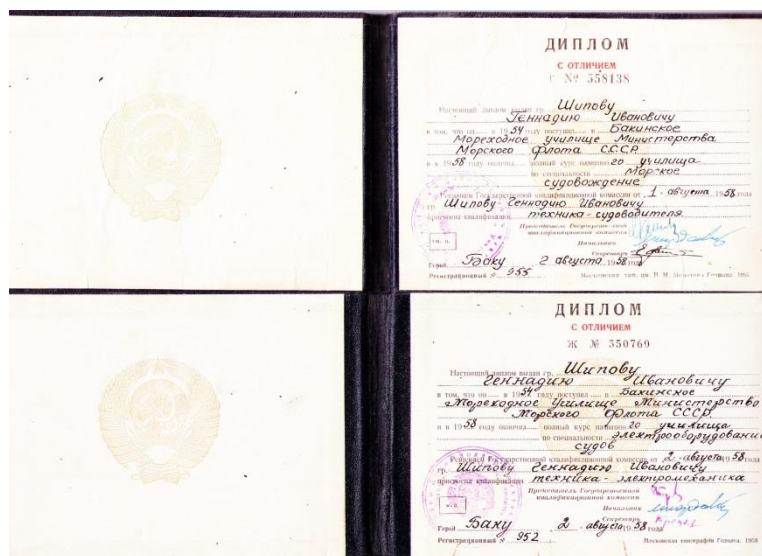 ДИПЛОМ
С ОТЛИЧИЕМ
Г № 558138
Настоящий диплом выдан гр. Шипову
Геннадию Ивановичу
в том, что он в 1954 году поступил в Бакинское
Мореходное училище Министерства
Морского Флота СССР
и в 1958 году окончил полный курс названного училища
по специальности Морское
судовождение
Решением Государственной квалификационной комиссии от 1 августа 1958 года
гр. Шипову Геннадию Ивановичу
присвоена квалификация техника-судоводителя
Председатель Государственной
квалификационной комиссии
Начальник
Секретарь
Город Баку 2 августа 1958 года
Регистрационный № 955
ДИПЛОМ
С ОТЛИЧИЕМ
Ж № 350769
Настоящий диплом выдан гр. Шипову
Геннадию Ивановичу
в том, что он в 1954 году поступил в Бакинское
Мореходное Училище Министерство
Морского Флота СССР
и в 1958 году окончил полный курс названного училища
по специальности электрооборудование
судов
Решением Государственной квалификационной комиссии от 2 августа 1958 года
гр. Шипову Геннадию Ивановичу
присвоена квалификация техника-электромеханика
Председатель Государственной
квалификационной комиссии
Начальник
Секретарь
Город Баку 2 августа 1958 года
Регистрационный № 952
Московская типография Гознака. 1958